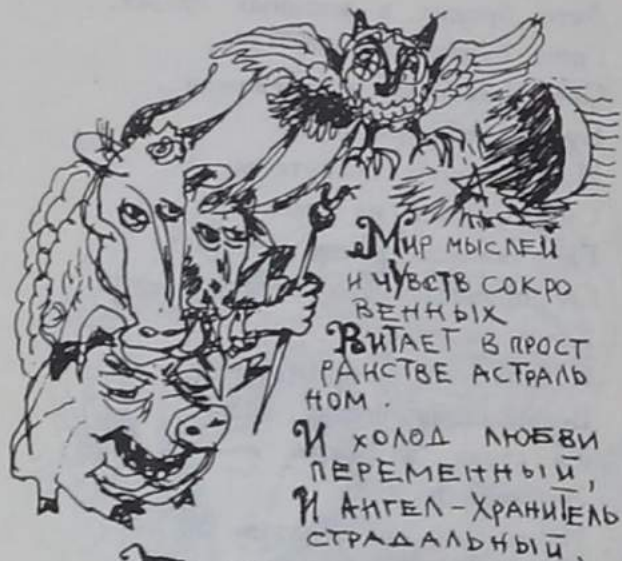 Мир мыслей
и чувств сокро
венных
Витает в прост
ранстве астраль
ном.
И холод любви
переменный,
И Ангел-Хранитель
страдальный.